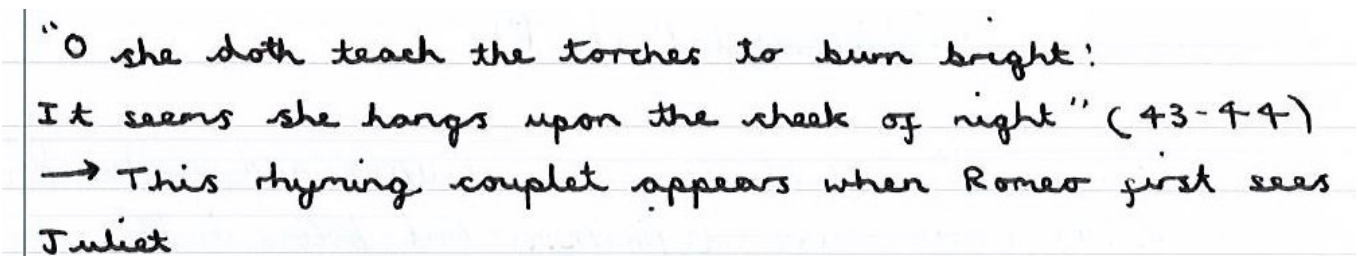 "O she doth teach the torches to burn bright!
It seems she hangs upon the cheek of night" (43-44)
→ This rhyming couplet appears when Romeo first sees
Juliet